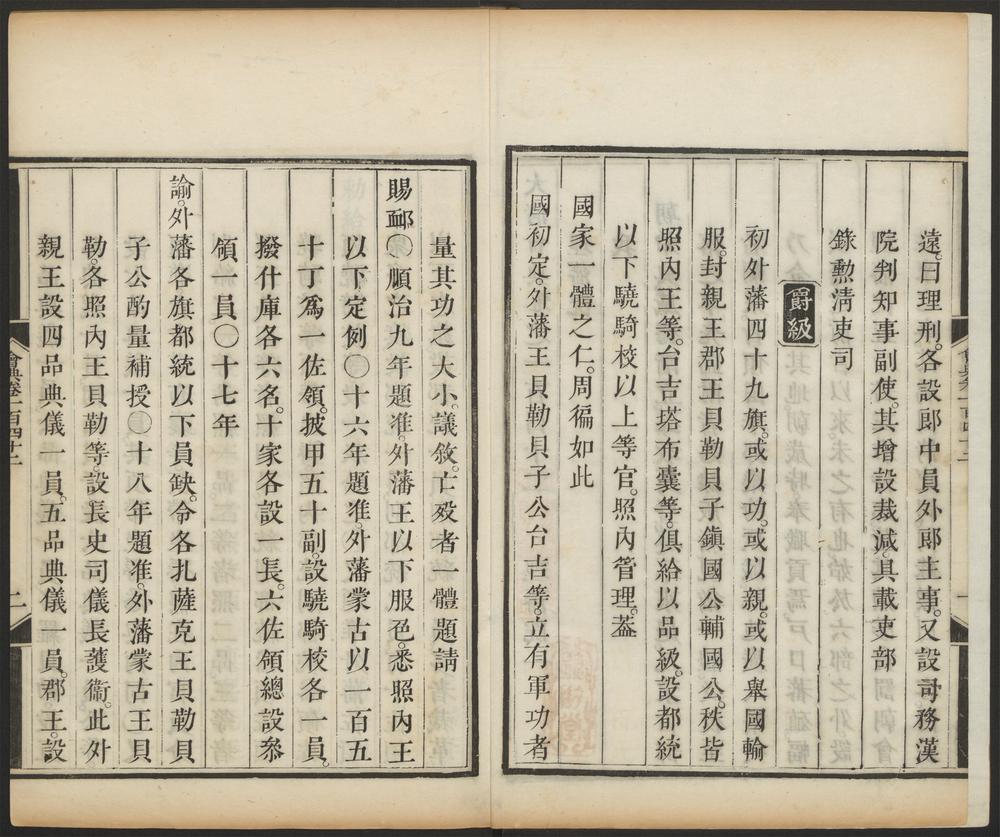 遠。曰理刑。各設郎中員外郎主事。又設司務漢
院判知事副使。其增設裁減。具載吏部
錄勲淸吏司
爵級
初外藩四十九旗。或以功。或以親。或以舉國輸
服。封親王郡王貝勒貝子鎭國公輔國公。秩皆
照內王等。台吉塔布囊等。俱給以品級。設都統
以下驍騎校以上等官。照內管理。葢
國家一體之仁。周徧如此
國初定。外藩王貝勒貝子公台吉等。立有軍功者
量其功之大小。議敘。亡歿者一體題請
賜䘏〇順治九年題准。外藩王以下服色。悉照內王
以下定例〇十六年題准。外藩蒙古以一百五
十丁爲一佐領。披甲五十副。設驍騎校各一員。
撥什庫各六名。十家各設一長。六佐領總設叅
領一員〇十七年
諭。外藩各旗都統以下員缺。令各扎薩克王貝勒貝
子公酌量補授〇十八年題准。外藩蒙古王貝
勒。各照內王貝勒等。設長史司儀長護衞。此外
親王設四品典儀一員。五品典儀一員。郡王。設
會典卷一百四十二
二